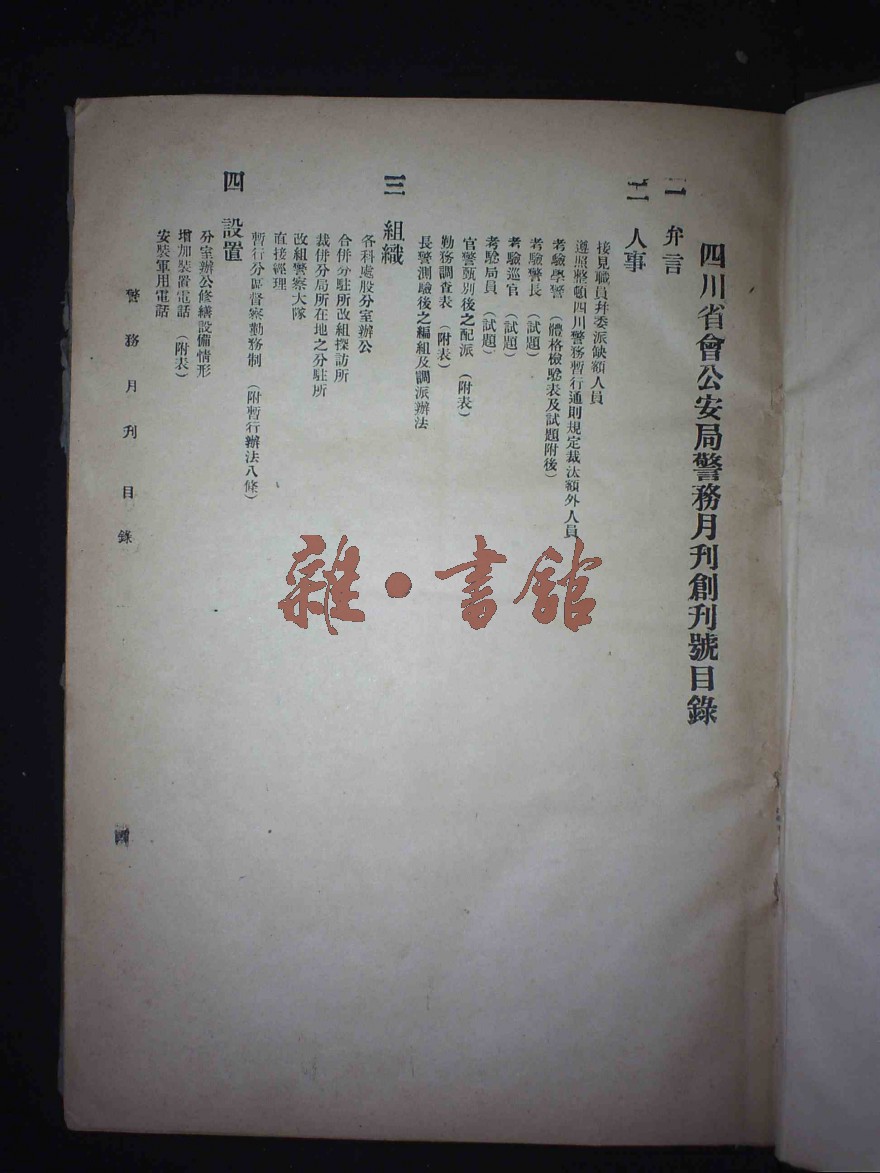 四川省會公安局警務月刊創刊號目錄
一 弁言
二 人事
接見職員幷委派缺額人員
遵照整頓四川警務暫行通則規定裁汰額外人員
考驗學警 (體格檢驗表及試題附後)
考驗警長 (試題)
考驗巡官 (試題)
考驗局員 (試題)
官警甄別後之配派 (附表)
勤務調查表 (附表)
長警測驗後之編組及調派辦法
三 組織
各科處股分室辦公
合併分駐所改組探訪所
裁併分局所在地之分駐所
改組警察大隊
直接經理
暫行分區督察勤務制 (附暫行辦法八條)
四 設置
分室辦公修繕設備情形
增加裝置電話 (附表)
安裝軍用電話
警務月刊 目錄
雜·書館